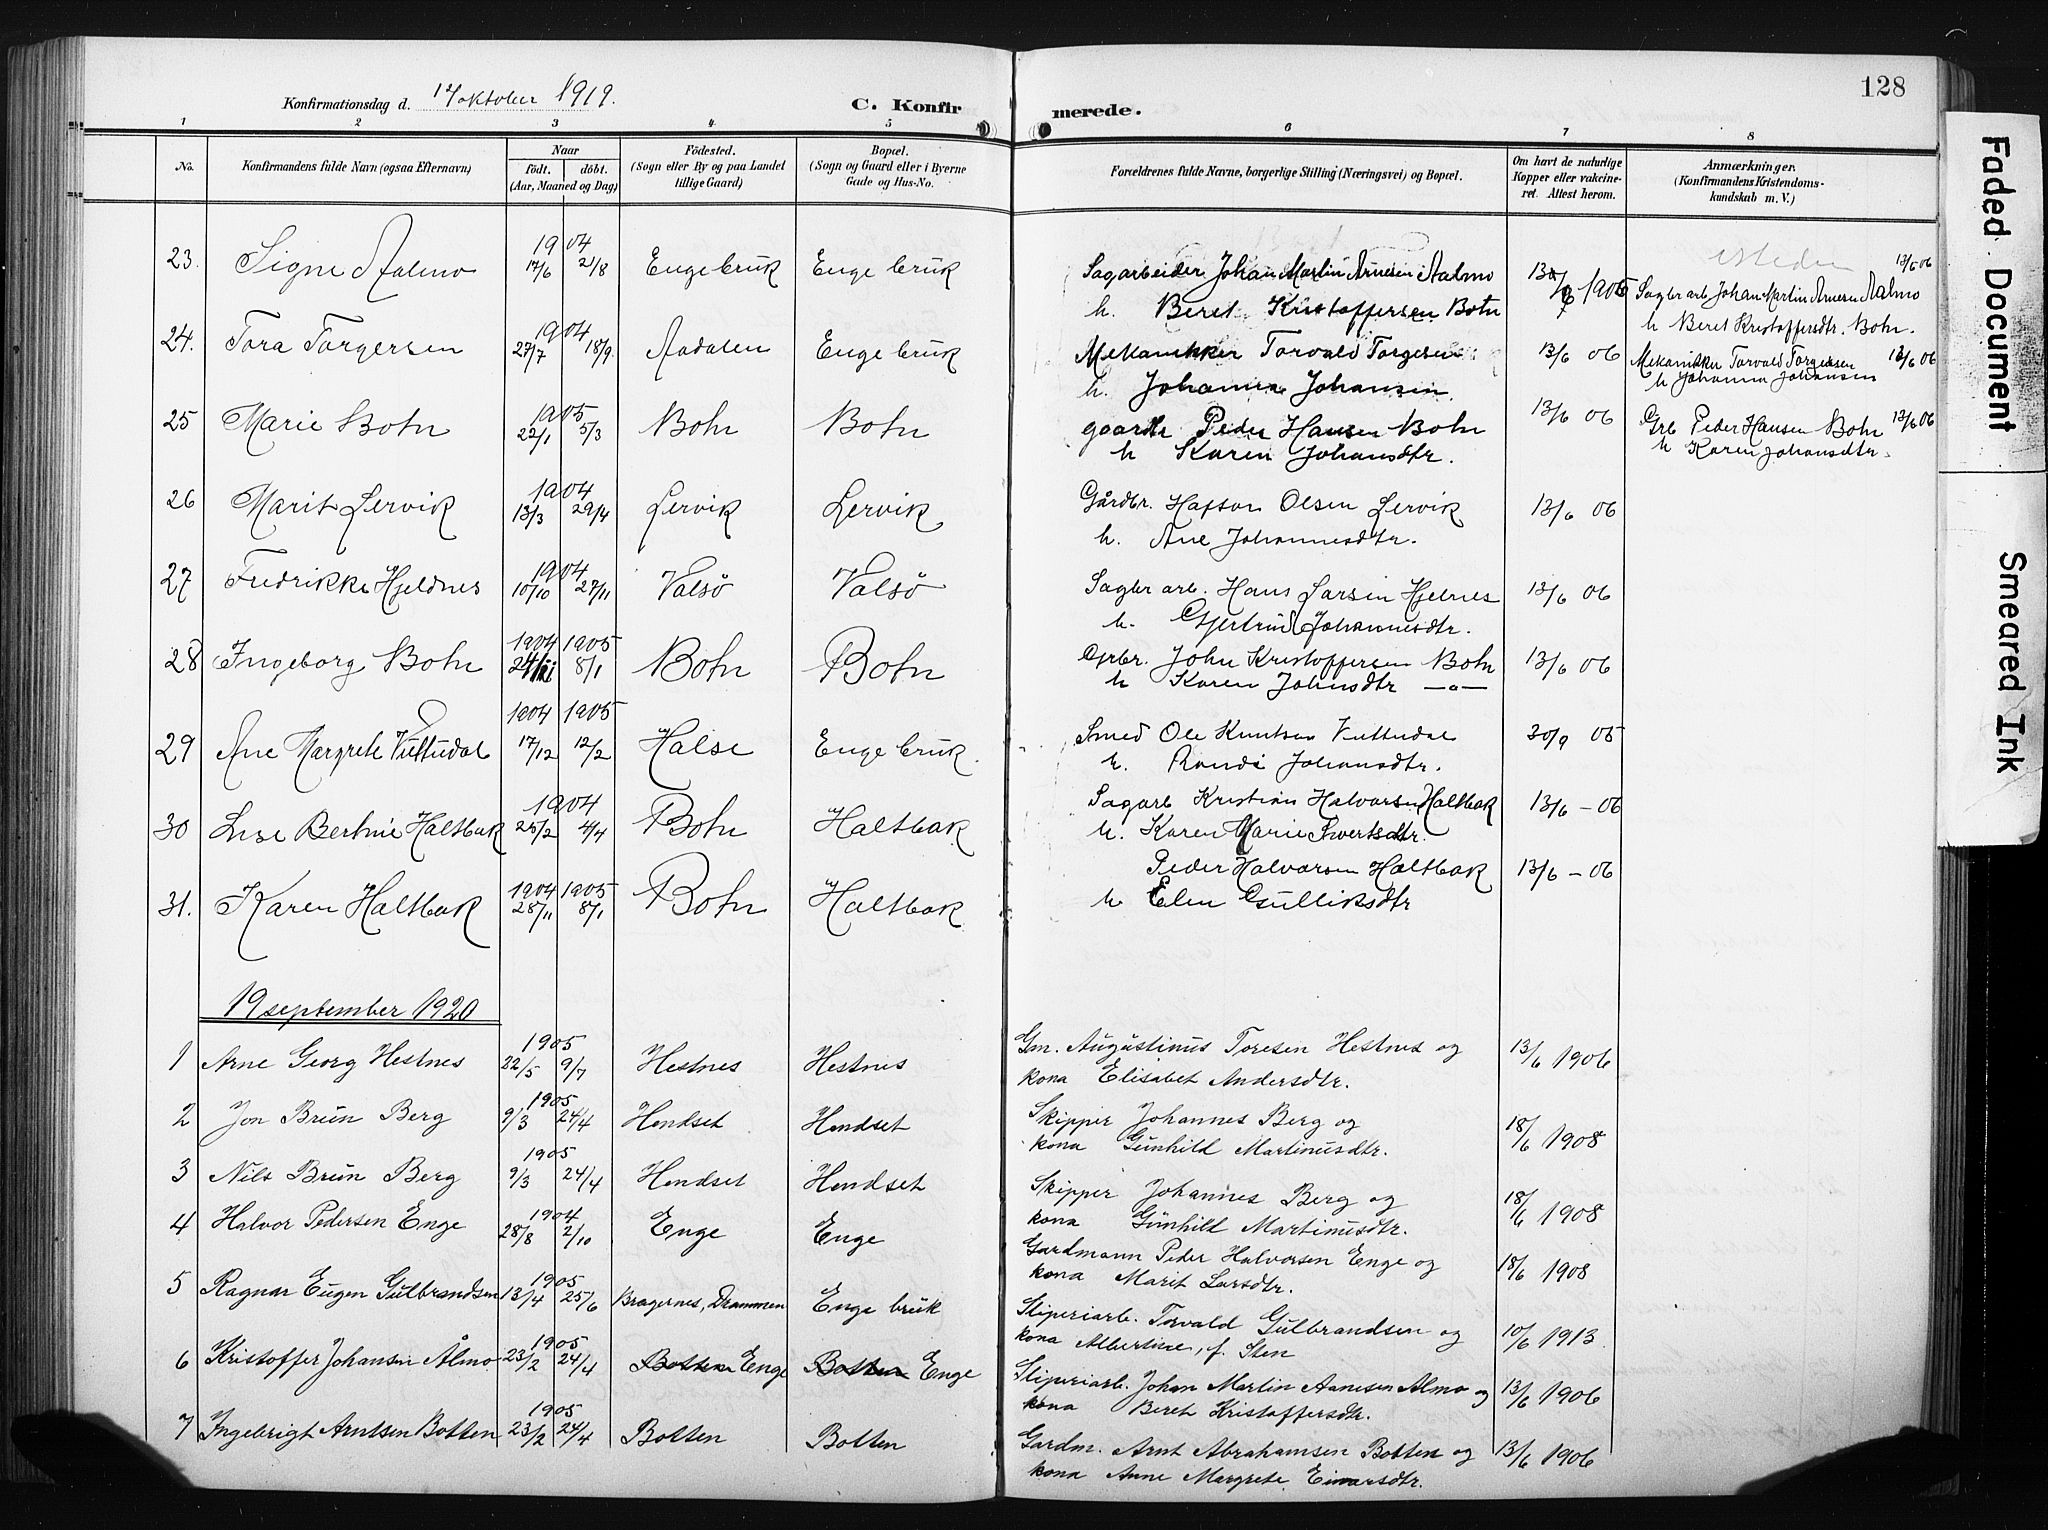 128
Konfirmationsdag d. oktober 1919.
C. Konfirmerede.
1 2 3 4 5 6 7 8
No. Konfirmandens fulde Navn (ogsaa Efternavn) Naar født. døbt. (Aar, Maaned og Dag) Fødested. (Sogn eller By og paa Landet tillige Gaard) Bopæl. (Sogn og Gaard eller i Byerne Gade og Hus-No. Forældrenes fulde Navne, borgerlige Stilling (Næringsvei) og Bopæl. Om havt de naturlige Kopper eller vakcineret. Attest herom. Anmærkninger. (Konfirmandens Kristendomskundskab m. V.)
23. Signe Aalmo 1904 17/6 21/8 Engebruk Enge bruk Sagarbeider Johan Martin Arnesen Aalmo 13/6 1906 Sagbr arb Johan Martin Arnesen Aalmo 13/6 06
h. Beret Kristoffersen Bohn h Beret Kristoffersdtr. Bohn.
24. Tora Torgersen 1904 27/7 18/9 Aadalen Enge bruk Mekanikker Torvald Torgersen 13/6 06 Mekanikker Torvald Torgersen 13/6 06
h. Johanna Johansen h Johanna Johansen
25 Marie Bohn 1905 22/1 5/3 Bohn Bohn gaardbr Peder Hansen Bohn 13/6 06 Grb Peder Hansen Bohn 13/6 06
h Karen Johansdtr. h Karen Johansdtr.
26 Marit Lervik 1904 13/3 29/4 Lervik Lervik Gårdbr. Hafton Olsen Lervik 13/6 06
h. Ane Johannesdtr.
27 Fredrikke Hjeldnes 1904 10/10 27/11 Valsø Valsø Sagbr arb. Hans Larsen Hjelnes 13/6 06
h. Gjertrud Johannesdtr.
28 Ingeborg Bohn 1904 1905 24/11 8/1 Bohn Bohn Grbr. John Kristoffersen Bohn 13/6 06
h Karen Johnsdtr —"—
29 Ane Margrete Vuttudal 1904 1905 17/12 12/2 Halse Enge bruk. Smed Ole Knutsen Vuttudal 30/9 05
h. Randi Johansdtr.
30 Lise Bertine Haltbak 1904 25/2 4/4 Bohn Haltbak Sagarb Kristian Halvorsen Haltbak 13/6 – 06
h. Karen Marie Sivertsdtr.
31. Karen Haltbak 1904 1905 28/11 8/1 Bohn Haltbak Peder Halvorsen Haltbak 13/6 – 06
h Elen Gulliksdtr
19 september 1920
1 Arne Georg Hestnes 1905 22/5 9/7 Hestnes Hestnes Gm. Augustinus Toresen Hestnes og 13/6 1906
kona Elisabet Andersdtr.
2 Jon Brun Berg 1905 9/3 24/4 Hendset Hendset Skipper Johannes Berg og 18/6 1908
kona Gunhild Martinusdtr.
3 Nils Brun Berg 1905 9/3 24/4 Hendset Hendset Skipper Johannes Berg og 18/6 1908
kona Gunhild Martinusdtr.
4 Halvor Pedersen Enge 1904 28/8 2/10 Enge Enge Gardmann Peder Halvorsen Enge og 18/6 1908
kona Marit Larsdtr.
5 Ragnar Eugen Gulbrandsen 1905 13/4 25/6 Bragernes, Drammen Enge bruk Sliperiarb. Torvald Gulbrandsen og 10/6 1913
kona Albertine, f. Sten
6 Kristoffer Johansen Ålmo 1905 23/2 24/4 Botten Enge Botten Enge Sliperiarb. Johan Martin Aanesen Almo og 13/6 1906
kona Beret Kristoffersdtr.
7 Ingebrigt Arntsen Botten 1905 23/2 24/4 Botten Botten Gardm. Arnt Abrahamsen Botten og 13/6 1906
kona Anne Margrete Einarsdtr.
Faded Document
Smeared Ink